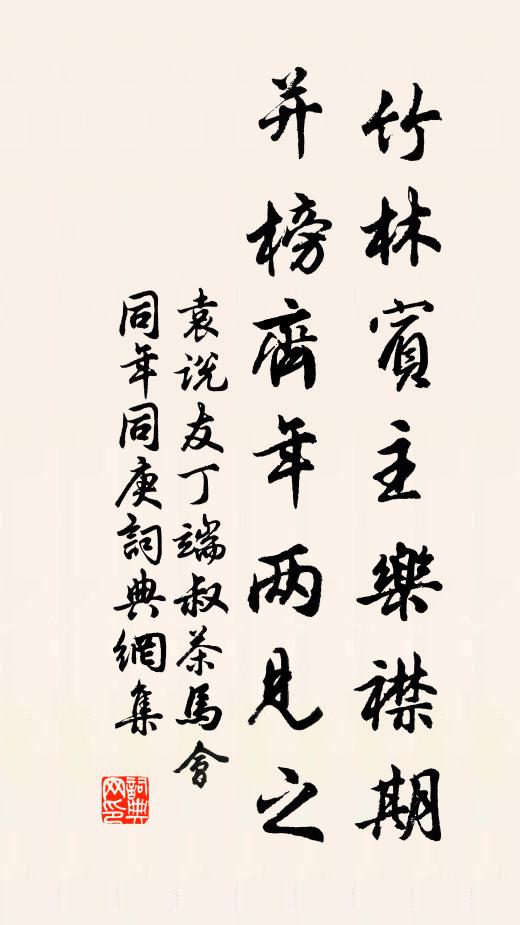 竹林賓主樂襟期
并榜齊年两見之
袁説友丁端叔茶馬會
同年同庚詞典網集
詞典网印